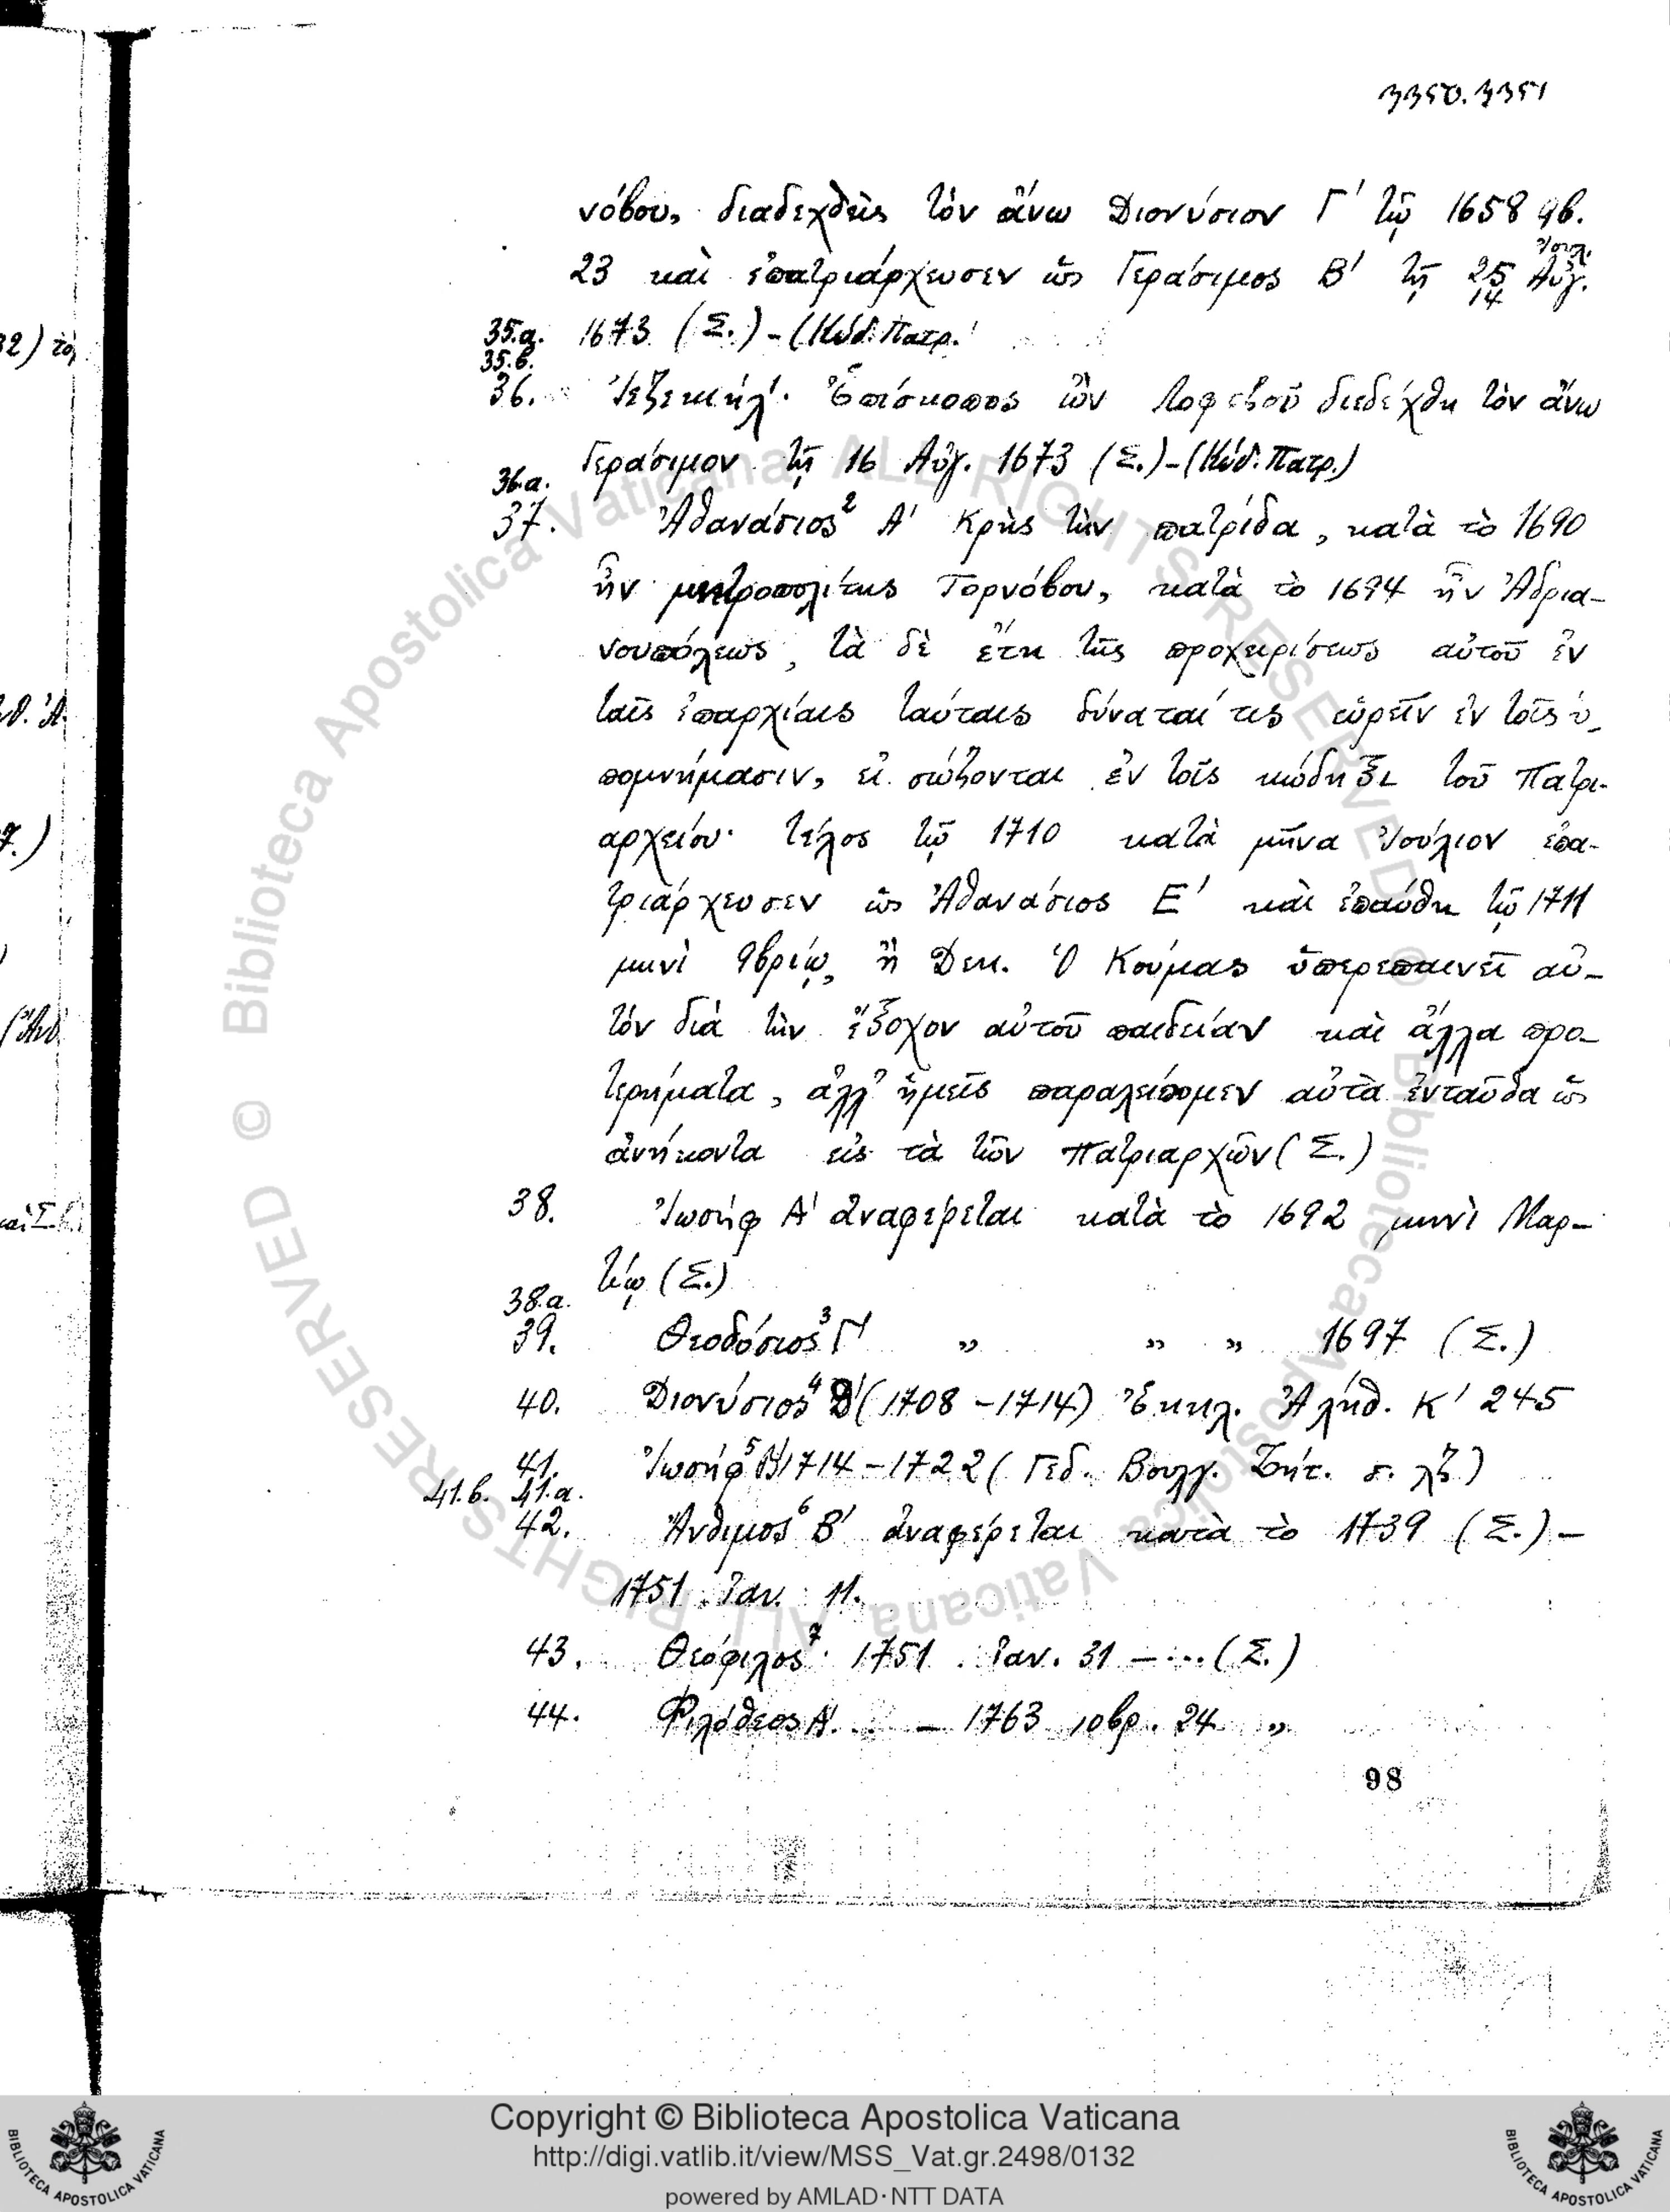 3350.3351
νόβου, διαδεχθεὶς τὸν ἄνω Διονύσιον Γ' τῷ 1658 9β.
Ἰουλ.
23 καὶ ἐπατριάρχευσεν ὡς Γεράσιμος Β' τῇ 25 Αὐγ.
14
35.α. 1673 (Σ.) - (Κώδ. Πατρ.
35.β.
36. Ἰεζεκιὴλ1. Ἐπίσκοπος ὢν Λοφετζοῦ διεδέχθη τὸν ἄνω
Γεράσιμον τῇ 16 Αὐγ. 1673 (Σ.) - (Κώδ. Πατρ.)
36.α.
37. Ἀθανάσιος2 Α' Κρὴς τὴν πατρίδα, κατὰ τὸ 1690
ἦν μητροπολίτης Τορνόβου, κατὰ τὸ 1694 ἦν Ἀδρια-
νουπόλεως, τὰ δὲ ἔτη τῆς προχειρίσεως αὐτοῦ ἐν
ταῖς ἐπαρχίαις ταύταις δύναταί τις εὑρεῖν ἐν τοῖς ὑ-
πομνήμασιν, εἰ σώζονται ἐν τοῖς κώδηξι τοῦ Πατρι-
αρχείου· τέλος τῷ 1710 κατὰ μῆνα Ἰούλιον ἐπα-
τριάρχευσεν ὡς Ἀθανάσιος Ε' καὶ ἐπαύθη τῷ 1711
μηνὶ 9βρίῳ ἢ Δεκ. Ὁ Κούμας ὑπερεπαινεῖ αὐ-
τὸν διὰ τὴν ἔξοχον αὐτοῦ παιδείαν καὶ ἄλλα προ-
τερήματα, ἀλλ' ἡμεῖς παραλείπομεν αὐτὰ ἐνταῦθα ὡς
ἀνήκοντα εἰς τὰ τῶν Πατριαρχῶν (Σ.)
38. Ἰωσὴφ Α' ἀναφέρεται κατὰ τὸ 1692 μηνὶ Μαρ-
τίῳ (Σ.)
38.α.
39. Θεοδόσιος3 Γ' " " " 1697 (Σ.)
40. Διονύσιος4 Δ' (1708 - 1714) Ἐκκλ. Ἀλήθ. Κ' 245
41. Ἰωσὴφ5 Β' 1714 - 1722 (Γεδ. Βουλγ. Ζήτ. σ. λζ')
41.β. 41.α.
42. Ἄνθιμος6 Β' ἀναφέρεται κατὰ τὸ 1739 (Σ.) -
1751 Ἰαν. 11.
43. Θεόφιλος7. 1751 Ἰαν. 31 - ... (Σ.)
44. Φιλόθεος Α'. .. - 1763 10βρ. 24 "
98
© Biblioteca Apostolica Vaticana ALL RIGHTS RESERVED © Biblioteca Apostolica Vaticana ALL RIGHTS RESERVED
Copyright © Biblioteca Apostolica Vaticana
http://digi.vatlib.it/view/MSS_Vat.gr.2498/0132
powered by AMLAD·NTT DATA
BIBLIOTECA APOSTOLICA VATICANA
BIBLIOTECA APOSTOLICA VATICANA